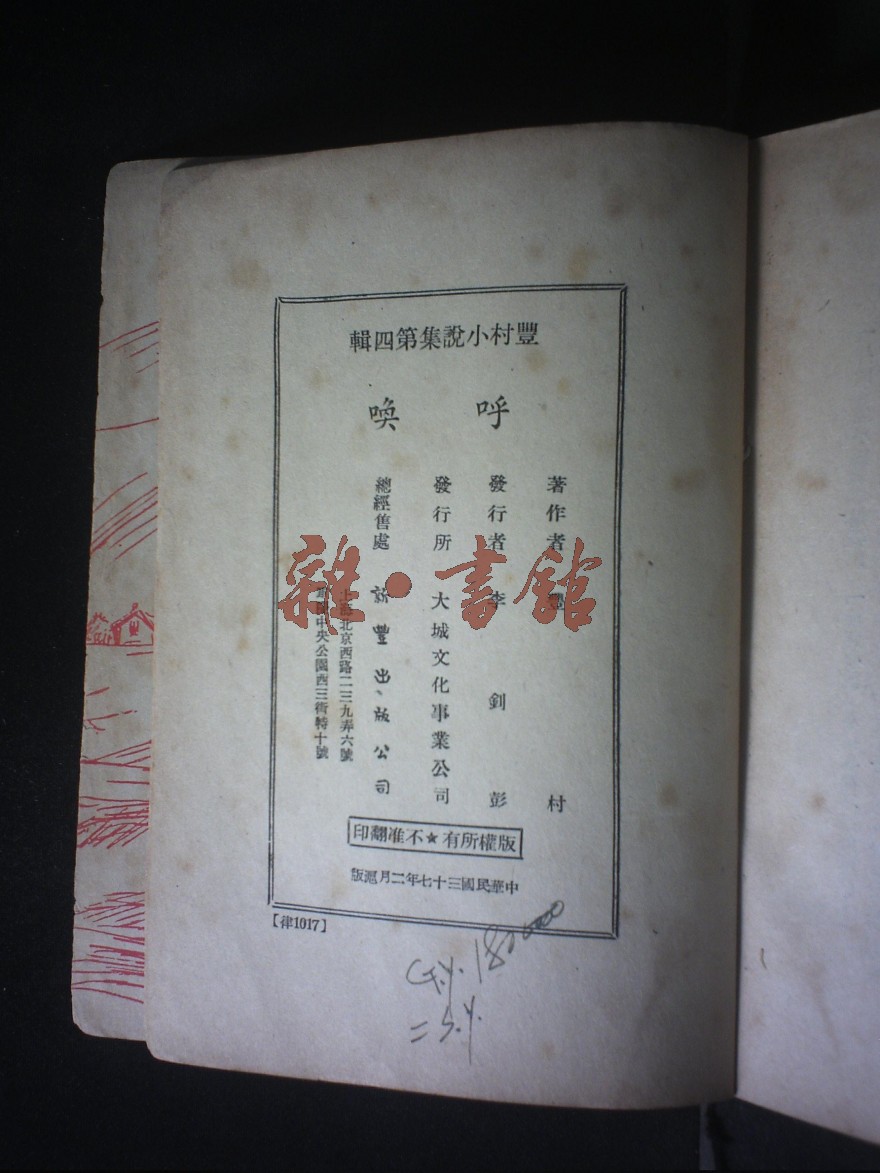 豐村小說集第四輯
呼喚
著作者 豐村
發行者 李釗彭
發行所 大城文化事業公司
總經售處 新豐出版公司
上海北京西路二三九弄六號
中央公園西三街特十號
版權所有★不准翻印
中華民國三十七年二月滬版
【律1017】
雜·書館
G.Y. 180000
= S.Y.